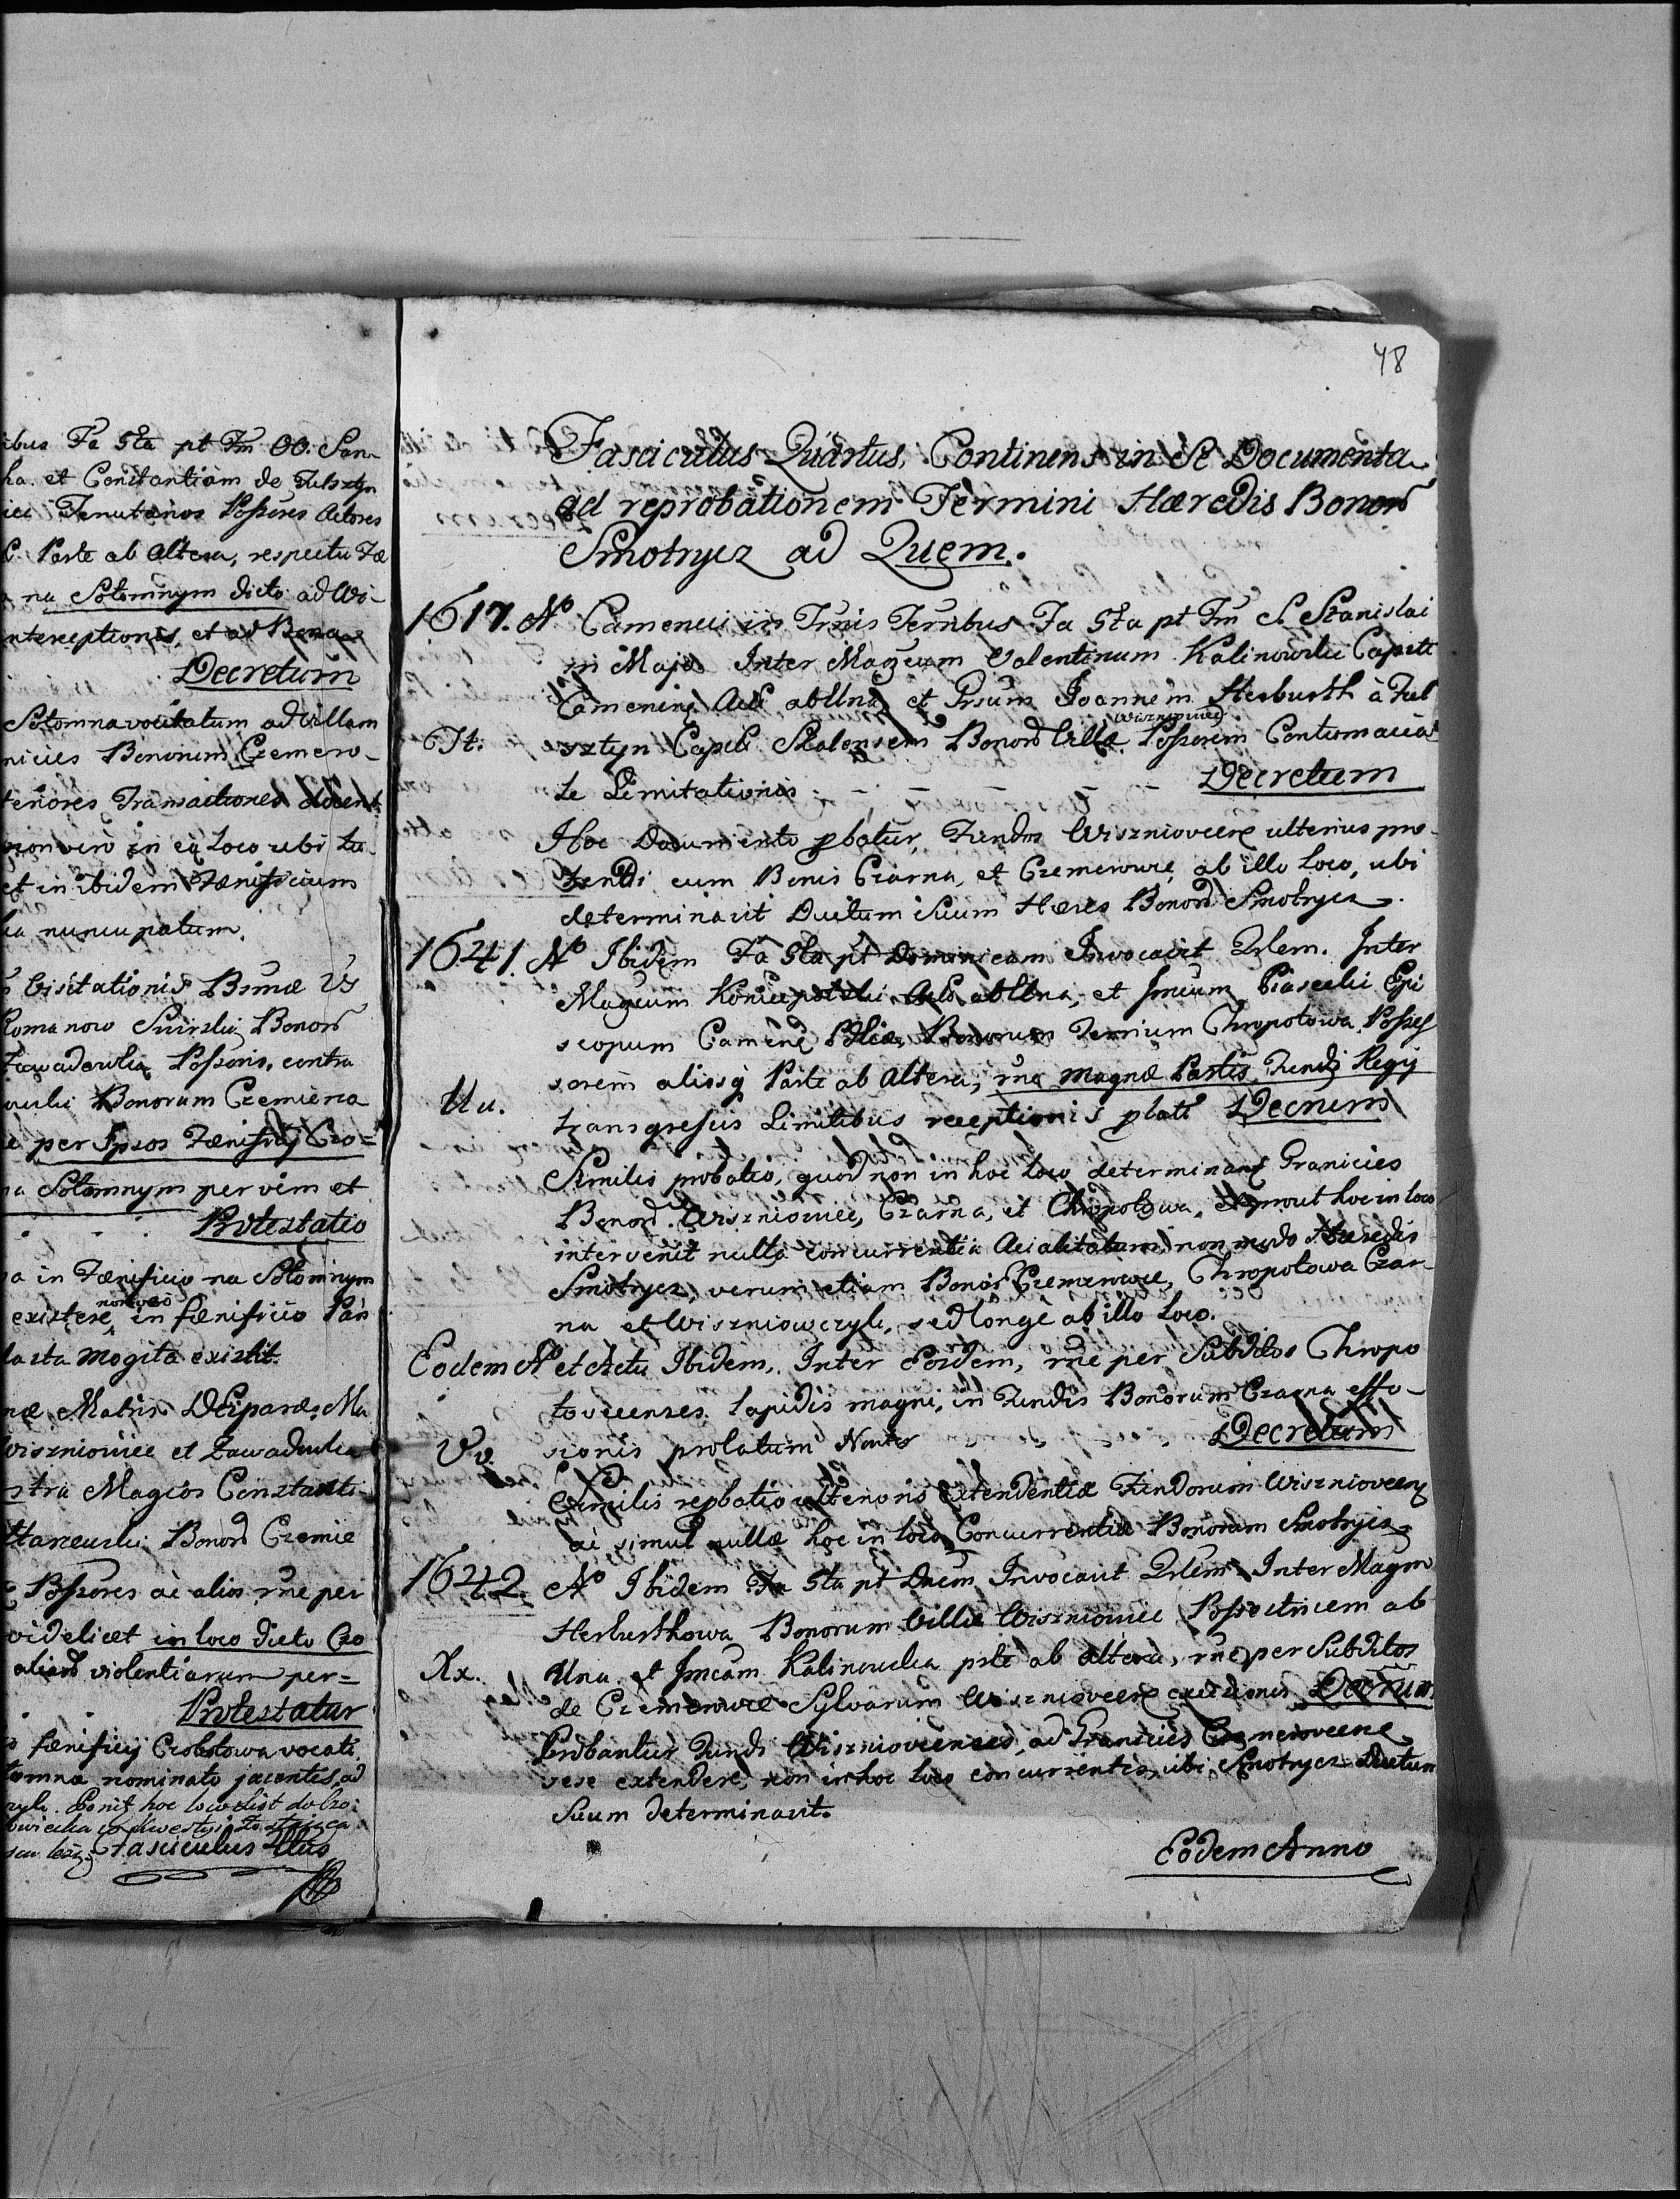 ibus Fa 5ta pt Fm OO. San-
ha. et Constantiam de Fulsztyn
Tenutarios Possores Actores
Parte ab Altera, respectu Fæ
na Sołomnym dicto ad Wi-
nterceptionis, et ad Bona
Decretum
Sołomna vocitatum ad Villam
nicies Bonorum Czemerow-
teriores Transactiones docent
non vero in eo loco ubi tu
et in ibidem Fænificium
ka nuncupatum.
Visitationis Bsmæ Vs
Romanow Swirski Bonord
Zawadowka Possoris, contra
Bonorum Czemierza
e per Ipsos Fænificij Czo=
na Sołomnym per vim et
Protestatio
a in Fænificio na Sołomnym
existere, non vero in fænificio Pań
lasta Mogiła existit.
næ Matris Deiparæ, Ma
Wiszniowiec et Zawadowka
stra Magcos Constanti
Starzewski Bonord Czemie
Possores ac alios rne per
videlicet in loco dicto Czo
aliard violentiarum per=
Protestatur
fænificij Czobotowa vocati
łomna nominato jacentes, ad
Fasciculus IIIus
48
Fasciculus Quartus, Continens in Se Documenta
ad reprobationem Termini Hæredis Bonord
Smotrycz ad Quem.
1617. Ao Camenecii in Trnis Ternibus Fa 5ta pt Fm S. Stanislai
in Majo Inter Magcum Valentinum Kalinowski Capitt
Camenens Act ab Una et Prsum Joannem Herburth à Ful
Tt. sztyn Capit Skalensem Bonord Villæ Wiszniowiec Possorem Contumacia
te Limitationis - - - - Decretum
Hoc Documento pbatur, Fundos Wisznioveens ulterius pro-
tendi cum Bonis Czarna, et Czemerowce, ab illo Loco, ubi
determinavit Ductum Suum Hæres Bonord Smotrycz.
1641. Ao Ibidem Fa 5ta pt Dominicam Invocavit Qlem. Inter
Magcum Koniecpolski Act ab Una, et Jmcum Piasecki Epi
scopum Camens Bonorum Terrium Chropotowa Posses
sorem aliosq Parte ab Altera, rne magnæ Partis Fundi Regij
Uu. transgressis Limitibus receptionis plati Decrum
Similis probatio, quod non in hoc loco determinant Granicies
Bonord Wiszniowiec, Czarna, et Chropotowa, et prout hoc in loco
intervenit nulla concurrentia non modo Hæredis
Smotrycz, verum etiam Bonis Czemerowce, Chropotowa Czar-
na et Wiszniowczyk, sed longè ab illo Loco.
Eodem Ao et Actu Ibidem, Inter Eosdem, rne per Subditos Chropo
tovicenses lapidis magni, in Fundis Bonorum Czarna effo-
Vv. sionis prolatum Decretum
Similis repbatio ulterioris extendentiæ Fundorum Wisznioveens
ac simul nullæ hoc in loco Concurrentiæ Bonorum Smotrycz
1642. Ao Ibidem Fa 5ta pt Dncm Invocavit Qlem Inter Magm
Herburthowa Bonorum Villæ Wiszniowiec Possestricem ab
Xx. Una et Jmcam Kalinowska prte ab Altera, rne per Subditos
de Czemerowce Sylvarum Wisznioveens excisionis Decrum
Probantur Fundi Wisznioviensis, ad Granicies Czemeroveens
vere extendere, non in hoc loco concurrentes, ubi Smotrycz Ductum
Suum determinavit.
Eodem Anno